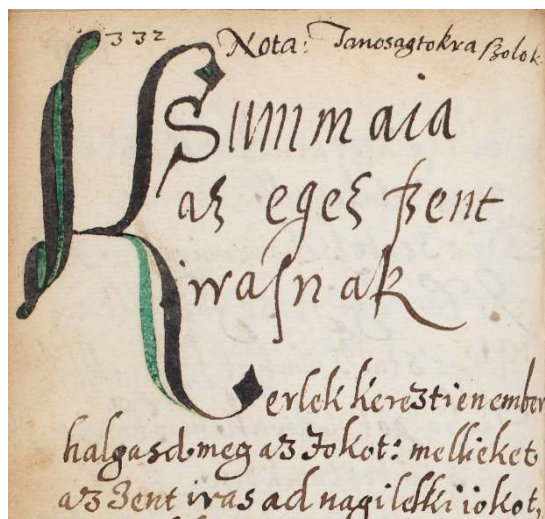 332 Nota: Tanosagtokra szolok
Summaia
az egesz szent
irasnak
Kerlek kereztien ember
halgasd meg az Jokot: mellieket
az Zent iras ad nagi lelki iokot,